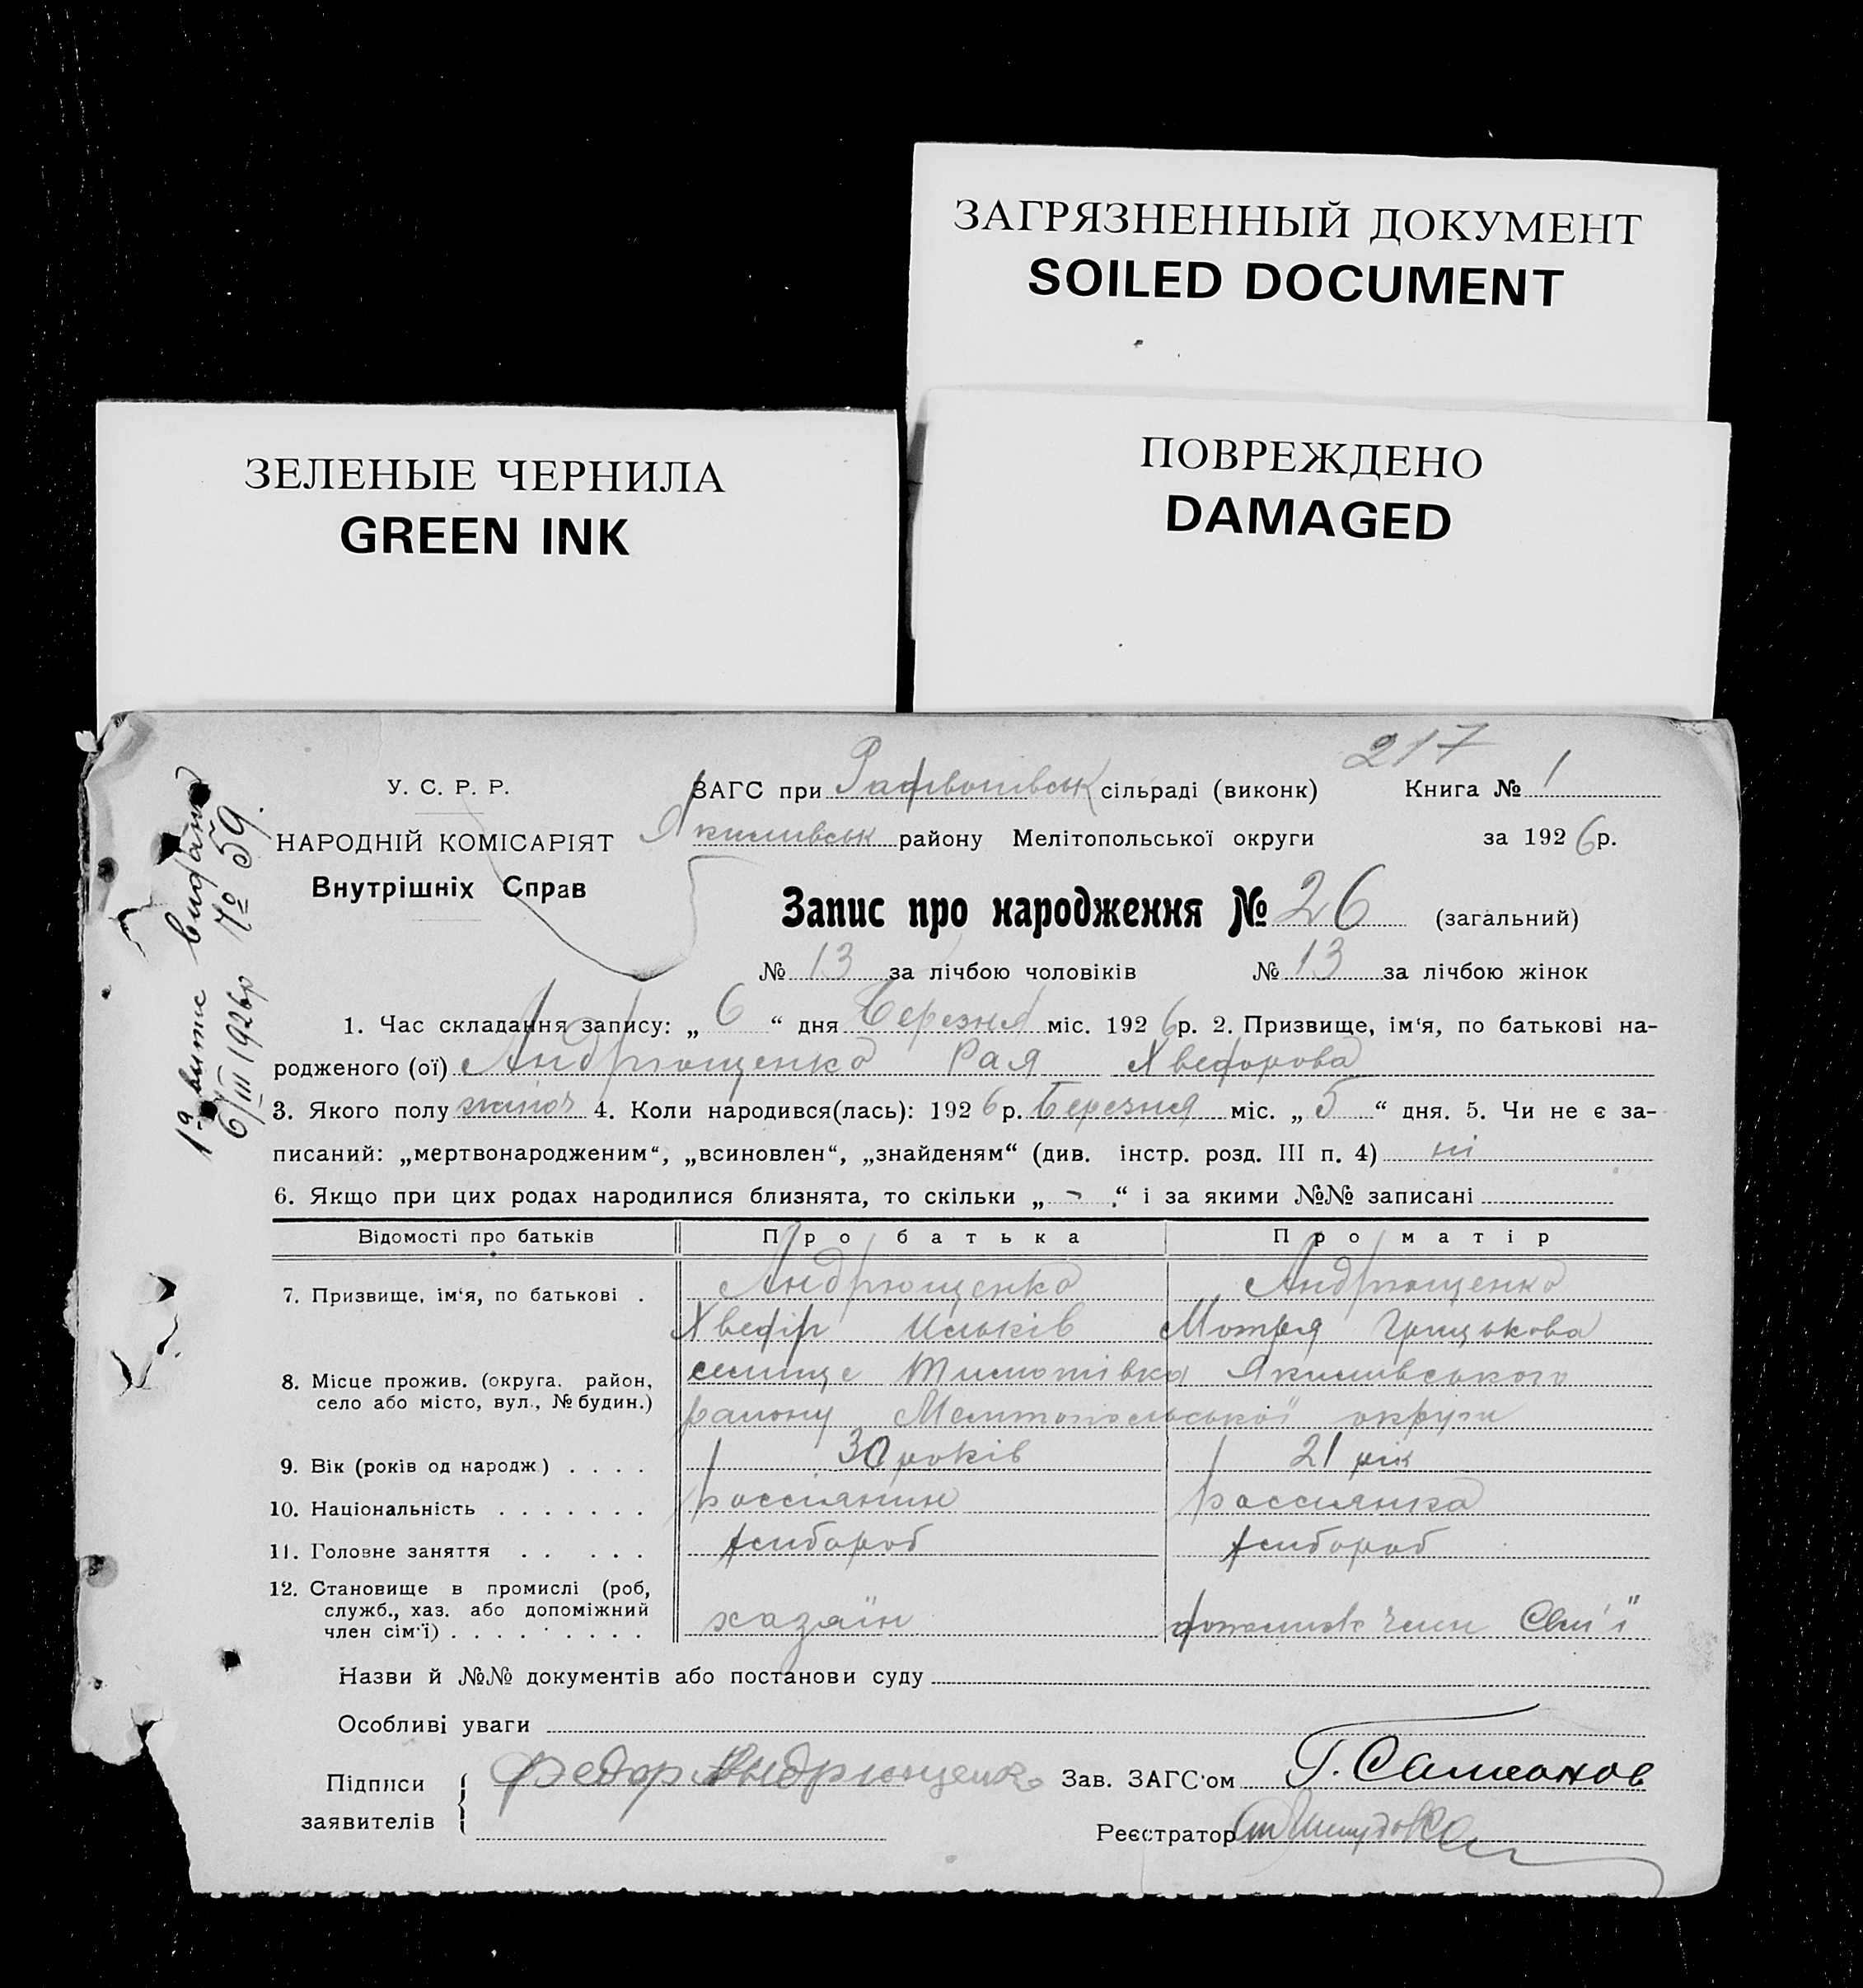 ЗАГРЯЗНЕННЫЙ ДОКУМЕНТ
SOILED DOCUMENT
ЗЕЛЕНЫЕ ЧЕРНИЛА
GREEN INK
ПОВРЕЖДЕНО
DAMAGED
217
У. С. Р. Р.
НАРОДНІЙ КОМІСАРІЯТ
Внутрішніх Справ
ЗАГС при сільраді (виконк) Книга № 1
Якимівськ району Мелітопольської округи за 1926 р.
Запис про народження № 26 (загальний)
№ 13 за лічбою чоловіків № 13 за лічбою жінок
1а витис видано
6/III 1926р № 59.
1. Час складання запису: „ 6 “ дня Березня міс. 1926 р. 2. Призвище, ім‘я, по батькові на-
родженого (ої) Андрющенко Рая Хведорова
3. Якого полу жіноч 4. Коли народився(лась): 1926 р. Березня міс. „ 5 “ дня. 5. Чи не є за-
писаний: „мертвонародженим“, „всиновлен“, „знайденям“ (див. інстр. розд. III п. 4) ні
6. Якщо при цих родах народилися близнята, то скільки „ - “ і за якими №№ записані
Відомості про батьків Про батька Про матір
7. Призвище, ім‘я, по батькові . Андрющенко Андрющенко
Хведір Ильків Мотря Грицькова
8. Місце прожив. (округа. район, село або місто, вул., № будин.) селище Тимотівка Якимівського
району Мелітопольської округи
9. Вік (років од народж) . . . . 30 років 21 рік
10. Національність . . . . . . . россіянин россиянка
11. Головне заняття . . . . . хлібороб хлібороб
12. Становище в промислі (роб,
служб., хаз. або допоміжний
член сім‘ї) . . . . . . . . . хазяїн допоміж член Сем'ї
Назви й №№ документів або постанови суду
Особливі уваги
Підписи
заявителів
Федор Андрющенко Зав. ЗАГС‘ом Г.
Реєстратор